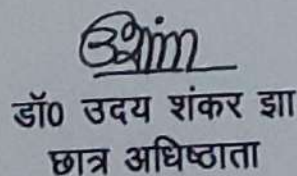 डॉ0 उदय शंकर झा
छात्र अधिष्ठाता